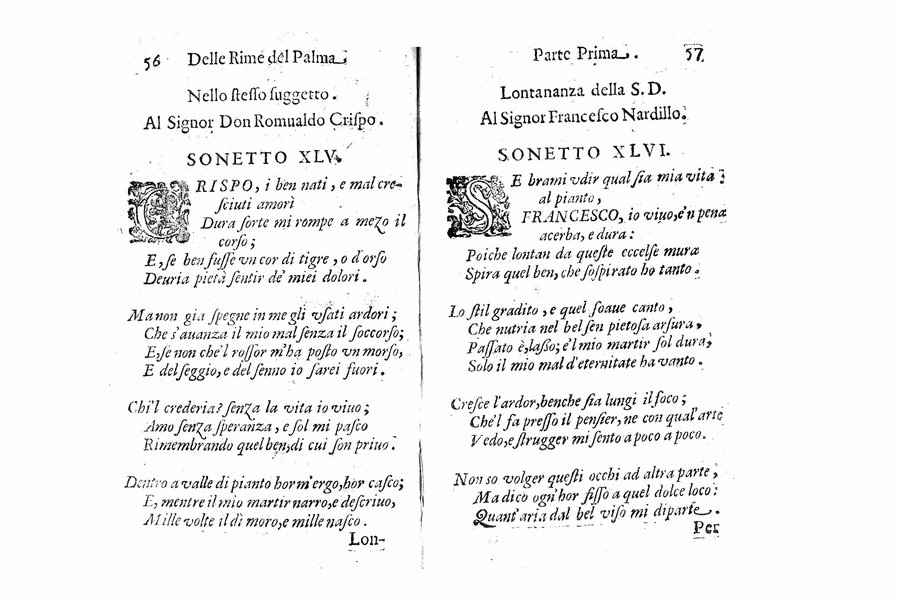 56 Delle Rime del Palma.
Nello steſſo ſuggetto.
Al Signor Don Romualdo Criſpo.
SONETTO XLV.
CRISPO, i ben nati, e mal cre-
ſciuti amori
Dura ſorte mi rompe a mezo il
corſo;
E, ſe ben fuſſe vn cor di tigre, o d'orſo
Deuria pietà ſentir de' miei dolori.
Ma non gia ſpegne in me gli vſati ardori;
Che s'auanza il mio mal ſenza il ſoccorſo;
E, ſe non che'l roſſor m'ha poſto vn morſo,
E del ſeggio, e del ſenno io ſarei fuori.
Chi'l crederia? ſenza la vita io viuo;
Amo ſenza ſperanza, e ſol mi paſco
Rimembrando quel ben, di cui ſon priuo.
Dentro a valle di pianto hor m'ergo, hor caſco;
E, mentre il mio martir narro, e deſcriuo,
Mille volte il dì moro, e mille naſco.
Lon-
Parte Prima. 57
Lontananza della S.D.
Al Signor Franceſco Nardillo.
SONETTO XLVI.
SE brami vdir qual ſia mia vita
al pianto,
FRANCESCO, io viuo, e'n pena
acerba, e dura:
Poiche lontan da queſte eccelſe mura
Spira quel ben, che ſoſpirato ho tanto.
Lo ſtil gradito, e quel ſoaue canto,
Che nutria nel bel ſen pietoſa arſura,
Paſſato è, laſſo; e'l mio martir ſol dura,
Solo il mio mal d'eternitate ha vanto.
Creſce l'ardor, benche ſia lungi il foco;
Che'l fa preſſo il penſier, ne con qual'arte
Vedo, e ſtrugger mi ſento a poco a poco.
Non so volger queſti occhi ad altra parte;
Ma dico ogn'hor fiſſo a quel dolce loco:
Quant'aria dal bel viſo mi diparte.
Per